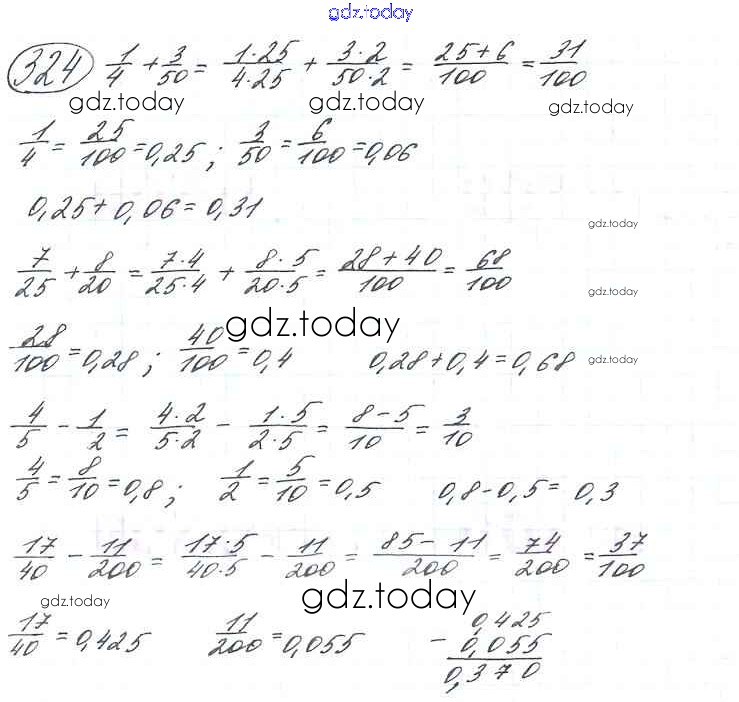 gdz.today
324 1/4 + 3/50 = 1·25/4·25 + 3·2/50·2 = 25+6/100 = 31/100
gdz.today gdz.today gdz.today
1/4 = 25/100 = 0,25 ; 3/50 = 6/100 = 0,06
0,25 + 0,06 = 0,31
gdz.today
7/25 + 8/20 = 7·4/25·4 + 8·5/20·5 = 28+40/100 = 68/100
gdz.today
gdz.today
28/100 = 0,28 ; 40/100 = 0,4 0,28 + 0,4 = 0,68
gdz.today
4/5 - 1/2 = 4·2/5·2 - 1·5/2·5 = 8-5/10 = 3/10
4/5 = 8/10 = 0,8 ; 1/2 = 5/10 = 0,5 0,8 - 0,5 = 0,3
17/40 - 11/200 = 17·5/40·5 - 11/200 = 85-11/200 = 74/200 = 37/100
gdz.today gdz.today
17/40 = 0,425 11/200 = 0,055
0,425
- 0,055
0,370